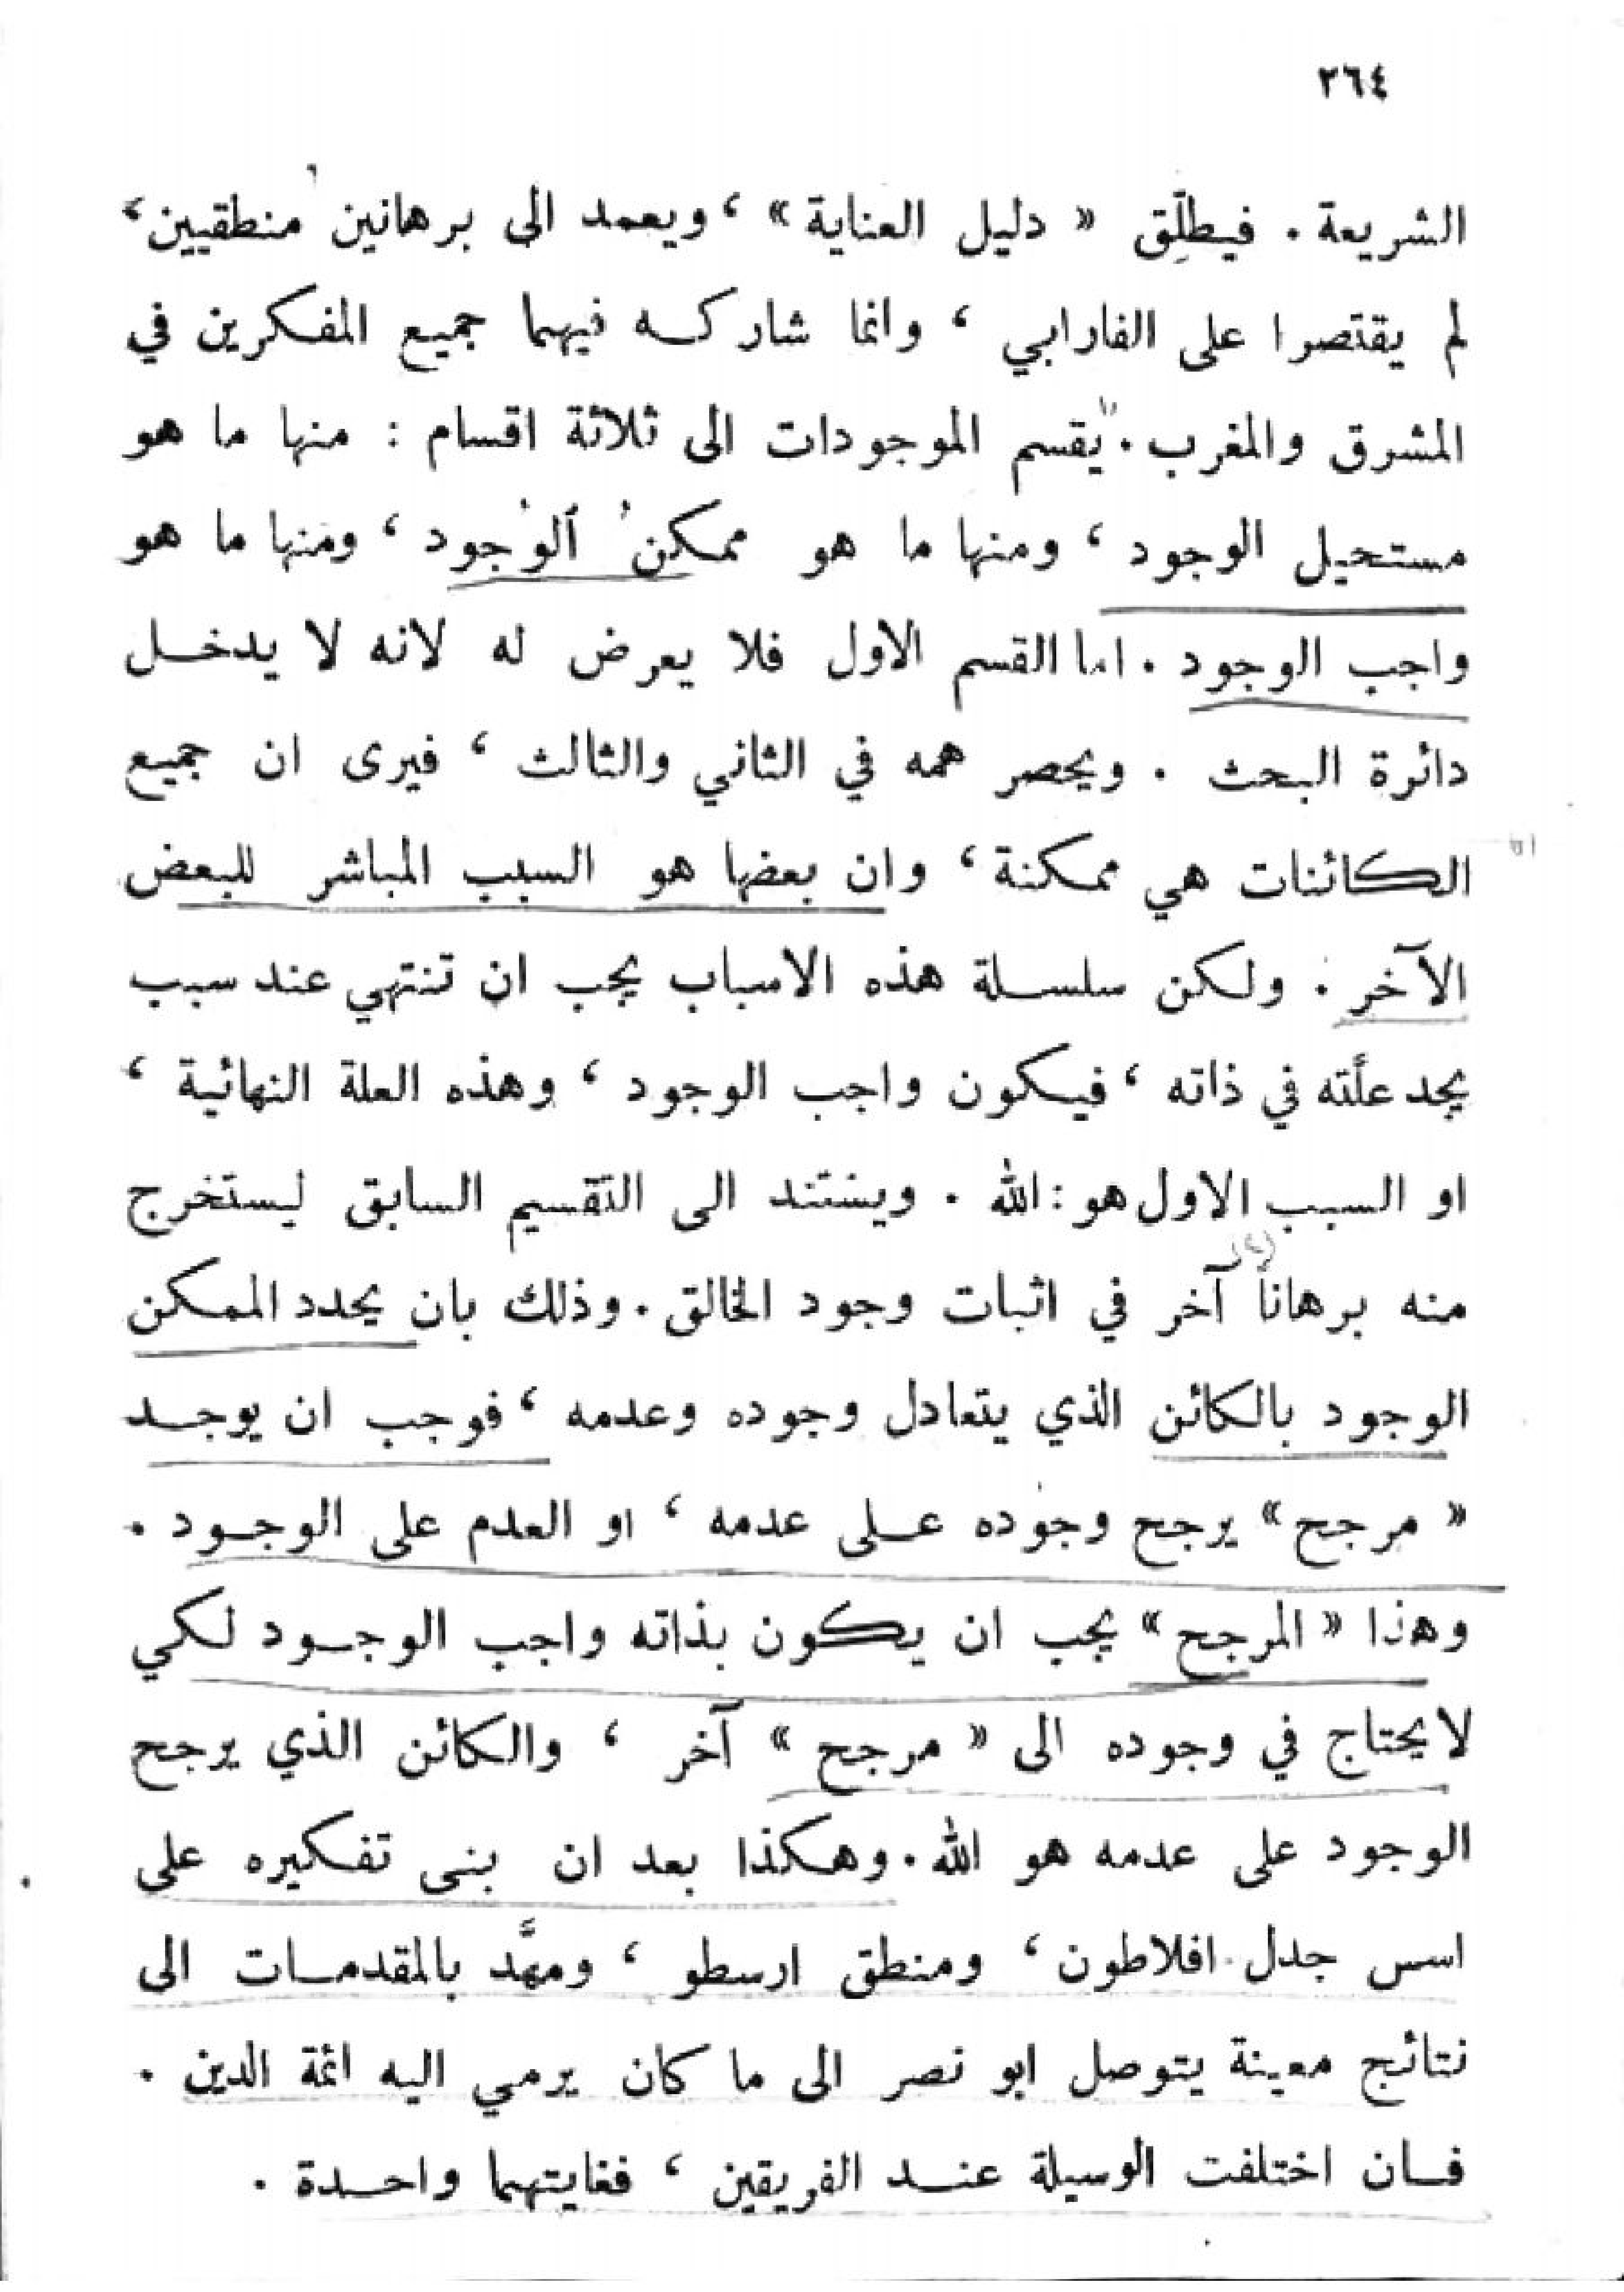 ٢٦٤
الشريعة . فيطلّق « دليل العناية » ، ويعمد الى برهانين منطقيين ،
لم يقتصرا على الفارابي ، وانما شاركه فيهما جميع المفكرين في
المشرق والمغرب . يقسم الموجودات الى ثلاثة اقسام : منها ما هو
مستحيل الوجود ، ومنها ما هو ممكن الوجود ، ومنها ما هو
واجب الوجود . اما القسم الاول فلا يعرض له لانه لا يدخل
دائرة البحث . ويحصر همه في الثاني والثالث ، فيرى ان جميع
الكائنات هي ممكنة ، وان بعضها هو السبب المباشر للبعض
الآخر . ولكن سلسلة هذه الاسباب يجب ان تنتهي عند سبب
يجد علّته في ذاته ، فيكون واجب الوجود ، وهذه العلة النهائية ،
او السبب الاول هو : الله . ويستند الى التقسيم السابق ليستخرج
(٢)
منه برهاناً آخر في اثبات وجود الخالق . وذلك بان يحدد الممكن
الوجود بالكائن الذي يتعادل وجوده وعدمه ، فوجب ان يوجد
« مرجح » يرجح وجوده على عدمه ، او العدم على الوجود .
وهذا « المرجح » يجب ان يكون بذاته واجب الوجود لكي
لا يحتاج في وجوده الى « مرجح » آخر ، والكائن الذي يرجح
الوجود على عدمه هو الله . وهكذا بعد ان بنى تفكيره على
اسس جدل افلاطون ، ومنطق ارسطو ، ومهَّد بالمقدمات الى
نتائج معينة يتوصل ابو نصر الى ما كان يرمي اليه ائمة الدين .
فان اختلفت الوسيلة عند الفريقين ، فغايتهما واحدة .